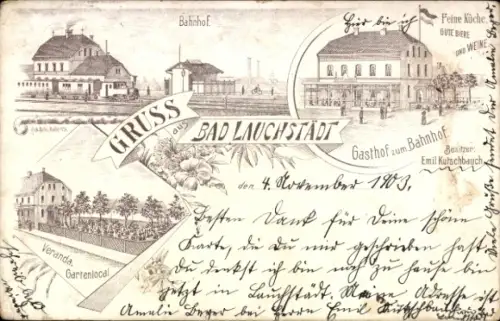 Bahnhof.
Hier bin ich
Feine Küche.
GUTE BIERE
UND WEINE
GRUSS
aus
BAD LAUCHSTÄDT
Gasthof zum Bahnhof.
Besitzer:
Emil Kutschbauch
Veranda.
Gartenlocal.
den 4. November 1903.
Besten Dank für Deine schöne
Karte, die Du mir geschrieben hast.
Du denkst ich bin noch zu hause bin
jetzt in Lauchstädt. Meine Adresse ist
Amalie Beyer bei Herrn Emil Kutschbauch